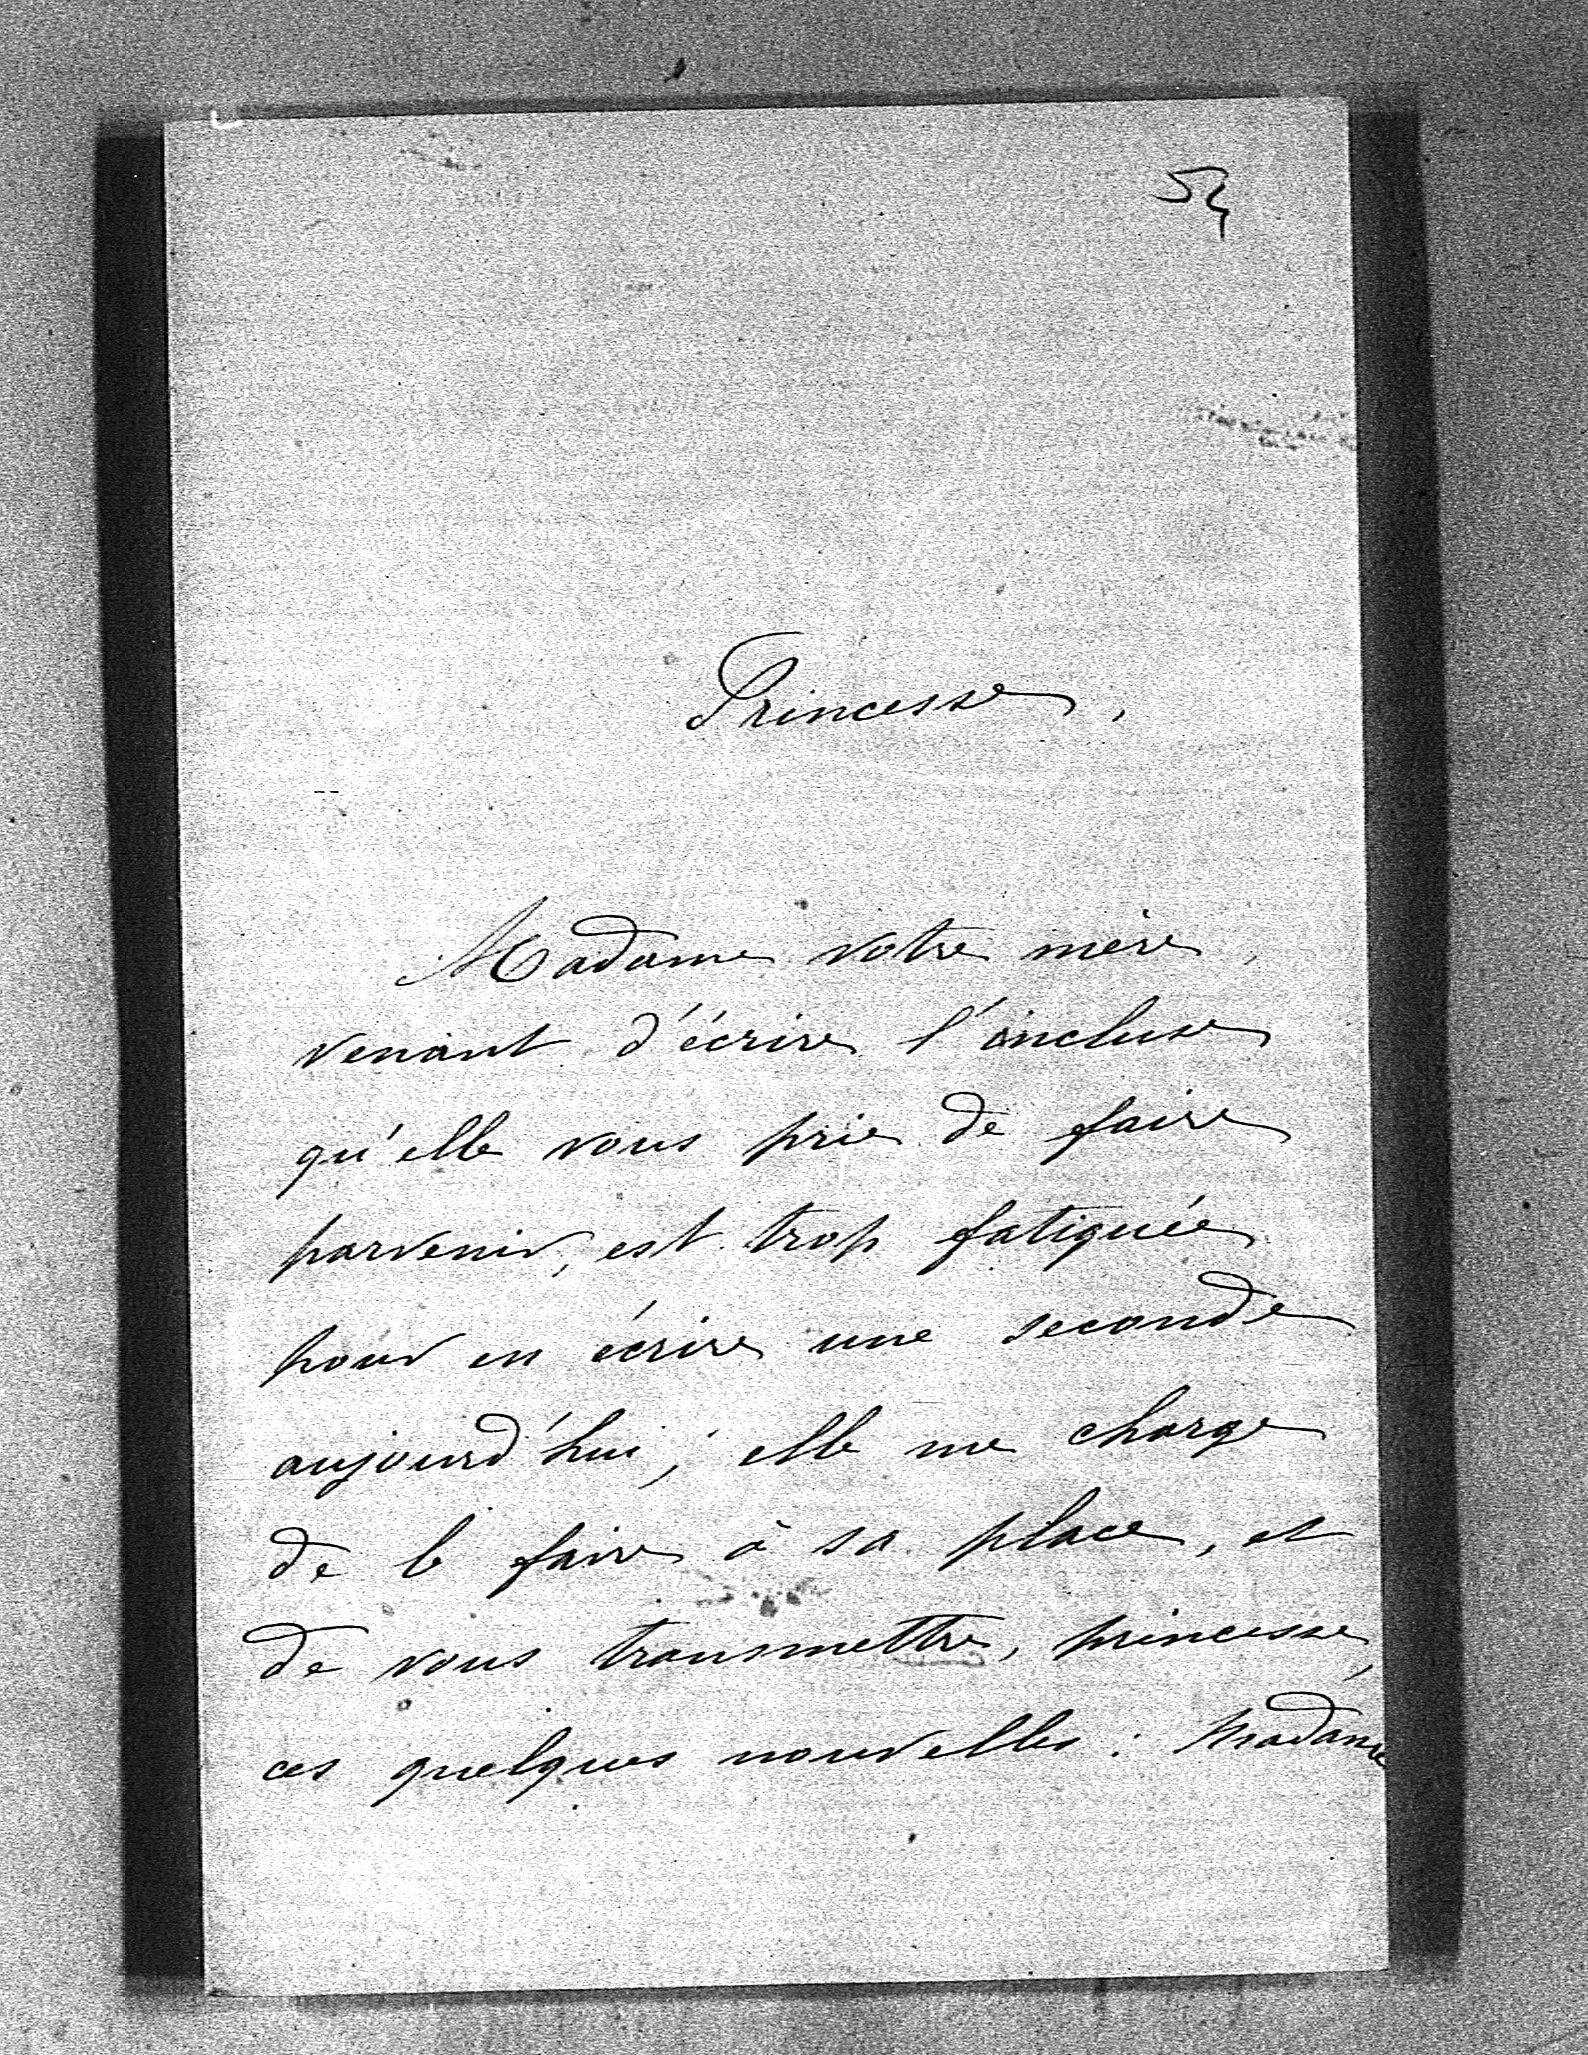 54
Princesse,
Madame votre mère,
venant d'écrire l'incluse
qu'elle vous prie de faire
parvenir, est trop fatiguée
pour en écrire une seconde
aujourd'hui; elle me charge
de le faire à sa place, et
de vous transmettre, princesse,
ces quelques nouvelles: Madame